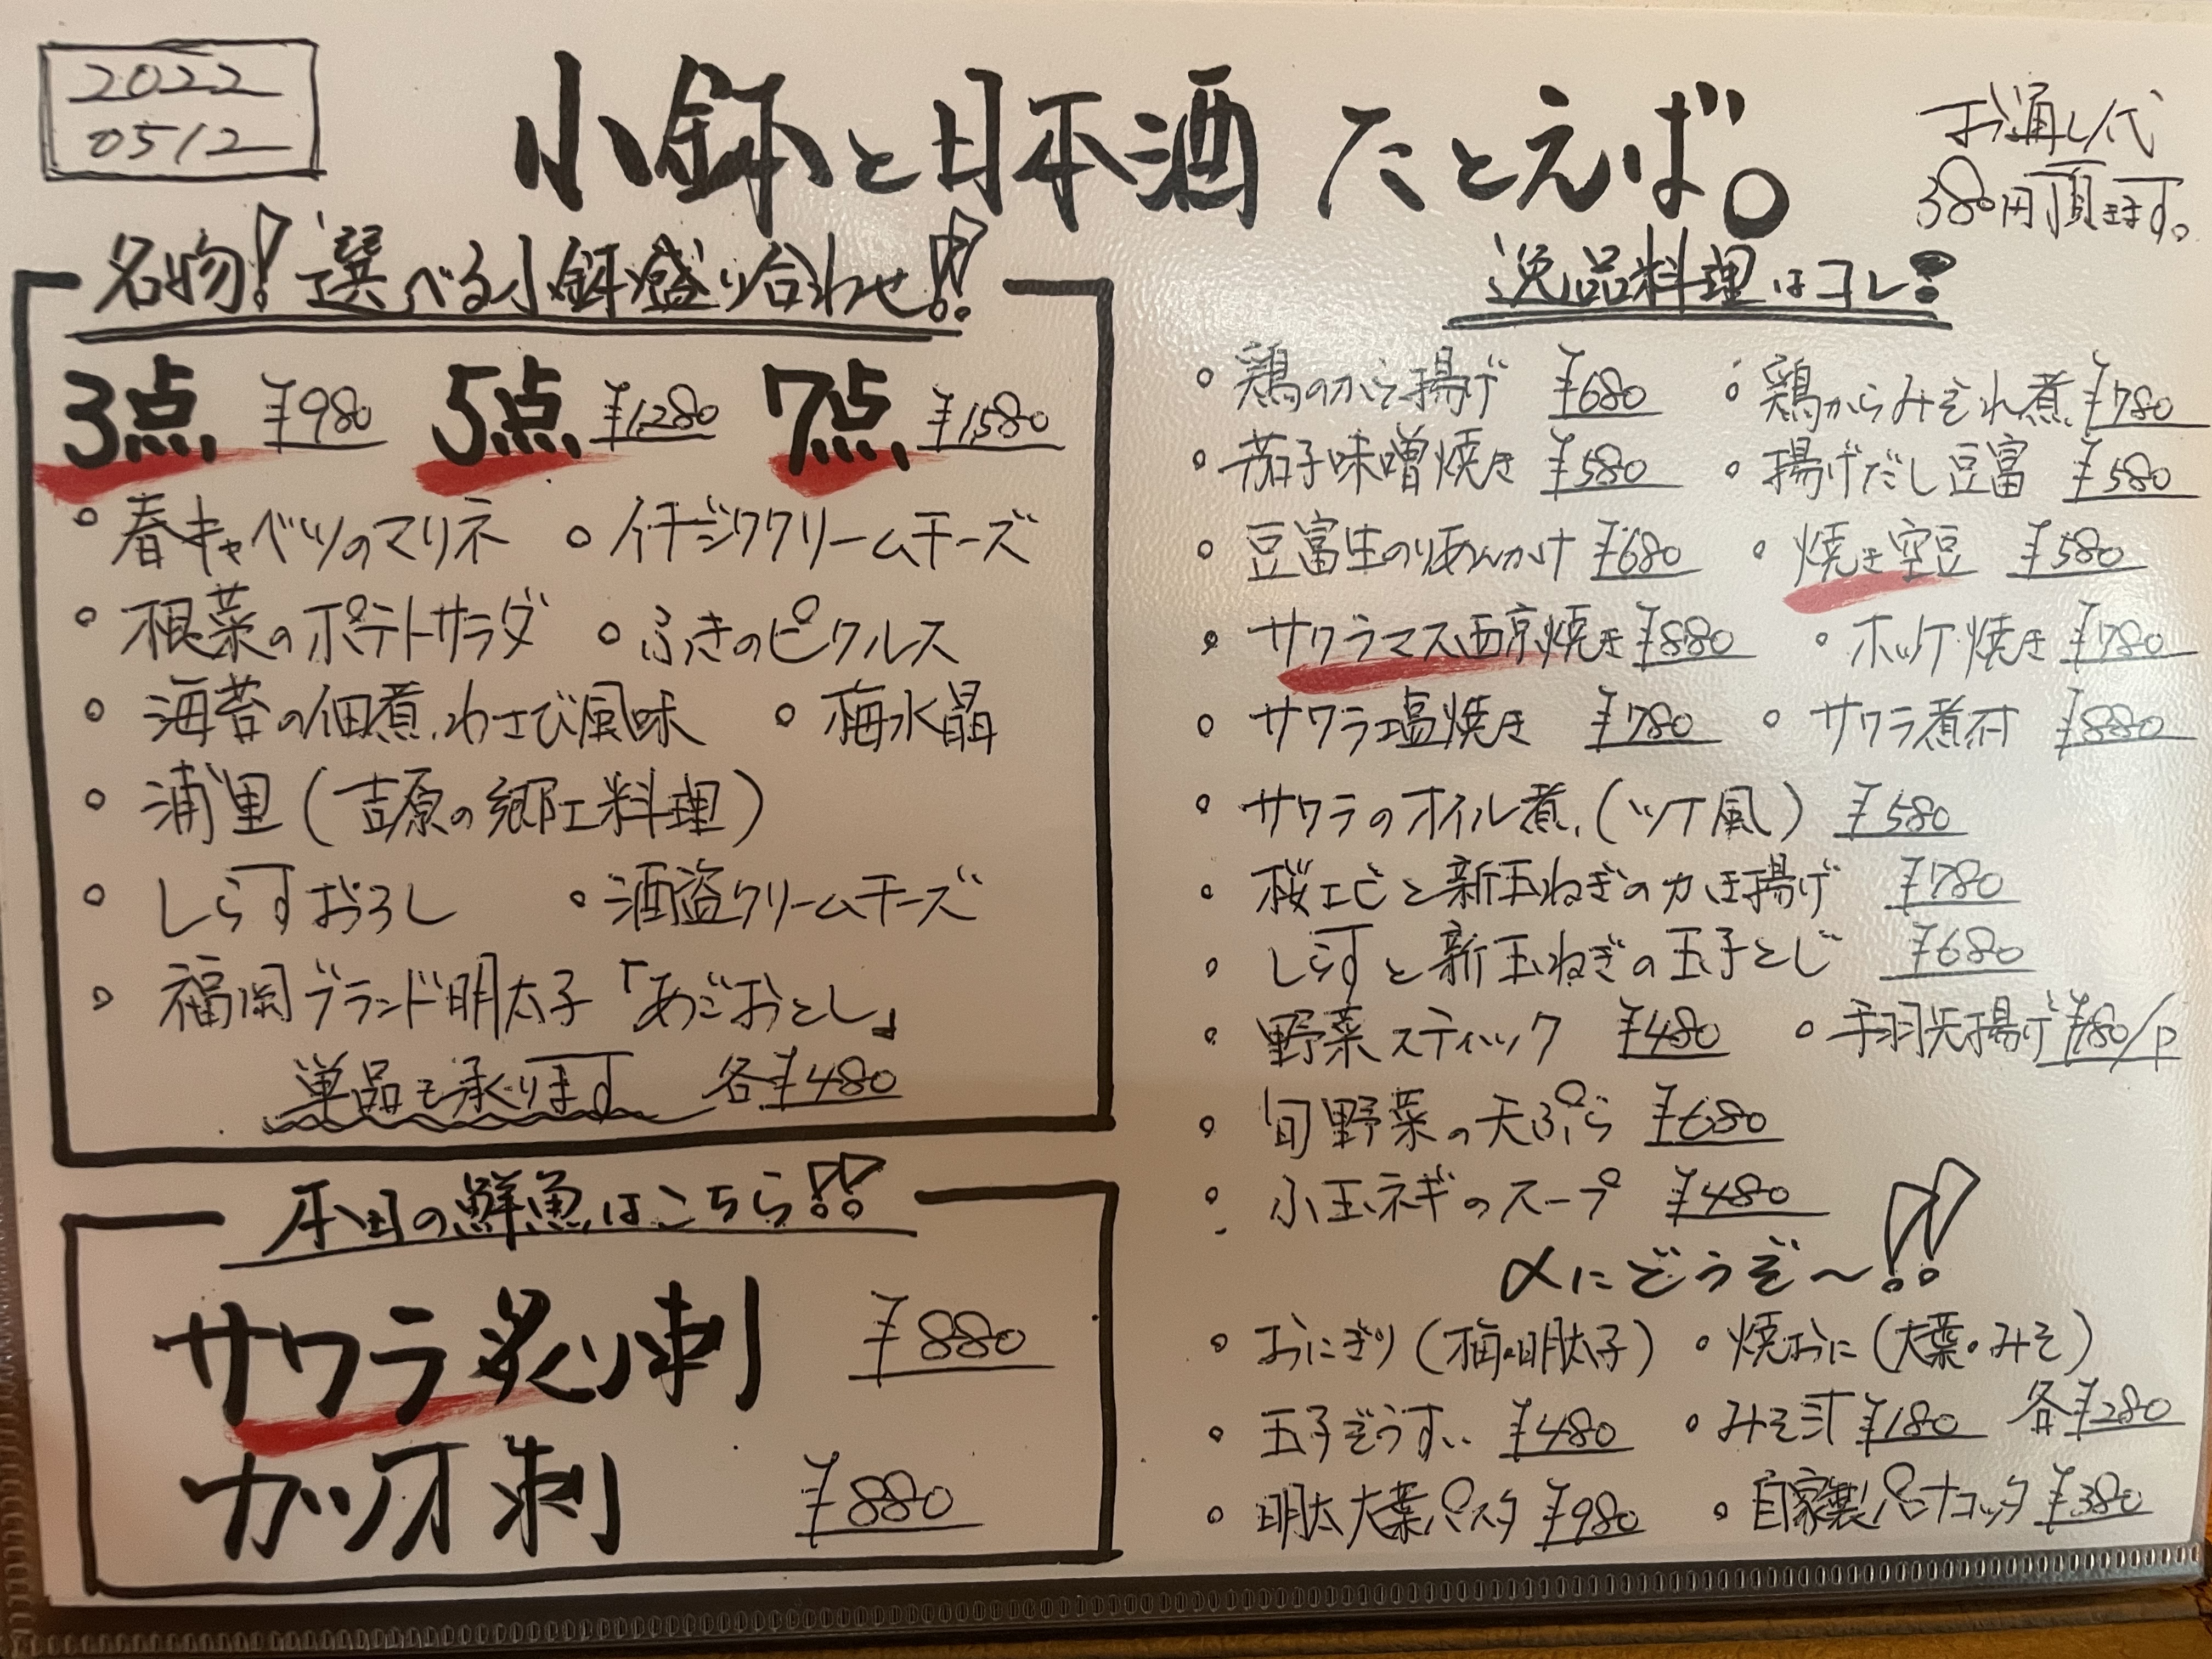 2022
0512
小鉢と日本酒 たとえば。
お通し代
380円頂きます。
名物!選べる小鉢盛り合わせ!!
3点 ¥980 5点 ¥1,280 7点 ¥1,580
・春キャベツのマリネ ・イチジククリームチーズ
・根菜のポテトサラダ ・ふきのピクルス
・海苔の佃煮わさび風味 ・梅水晶
・浦里(吉原の郷土料理)
・しらすおろし ・酒盗クリームチーズ
・福岡ブランド明太子「あごおとし」
単品も承ります 各¥480
本日の鮮魚はこちら!!
サワラ炙り刺 ¥880
カツオ刺 ¥880
逸品料理はコレ!
・鶏のから揚げ ¥680 ・鶏からみぞれ煮 ¥780
・茄子味噌焼き ¥580 ・揚げだし豆富 ¥580
・豆富生のりあんかけ ¥680 ・焼き空豆 ¥580
・サクラマス西京焼き ¥880 ・ホッケ焼き ¥780
・サワラ塩焼き ¥780 ・サワラ煮付 ¥880
・サワラのオイル煮(ツナ風) ¥580
・桜エビと新玉ねぎのかき揚げ ¥780
・しらすと新玉ねぎの玉子とじ ¥680
・野菜スティック ¥480 ・手羽先揚げ ¥180/P
・旬野菜の天ぷら ¥680
・小玉ネギのスープ ¥480
〆にどうぞ〜!!
・おにぎり(梅・明太子) ・焼おに(大葉・みそ)
各¥280
・玉子ぞうすい ¥480 ・みそ汁 ¥180
・明太大葉パスタ ¥980 ・自家製パンナコッタ ¥380